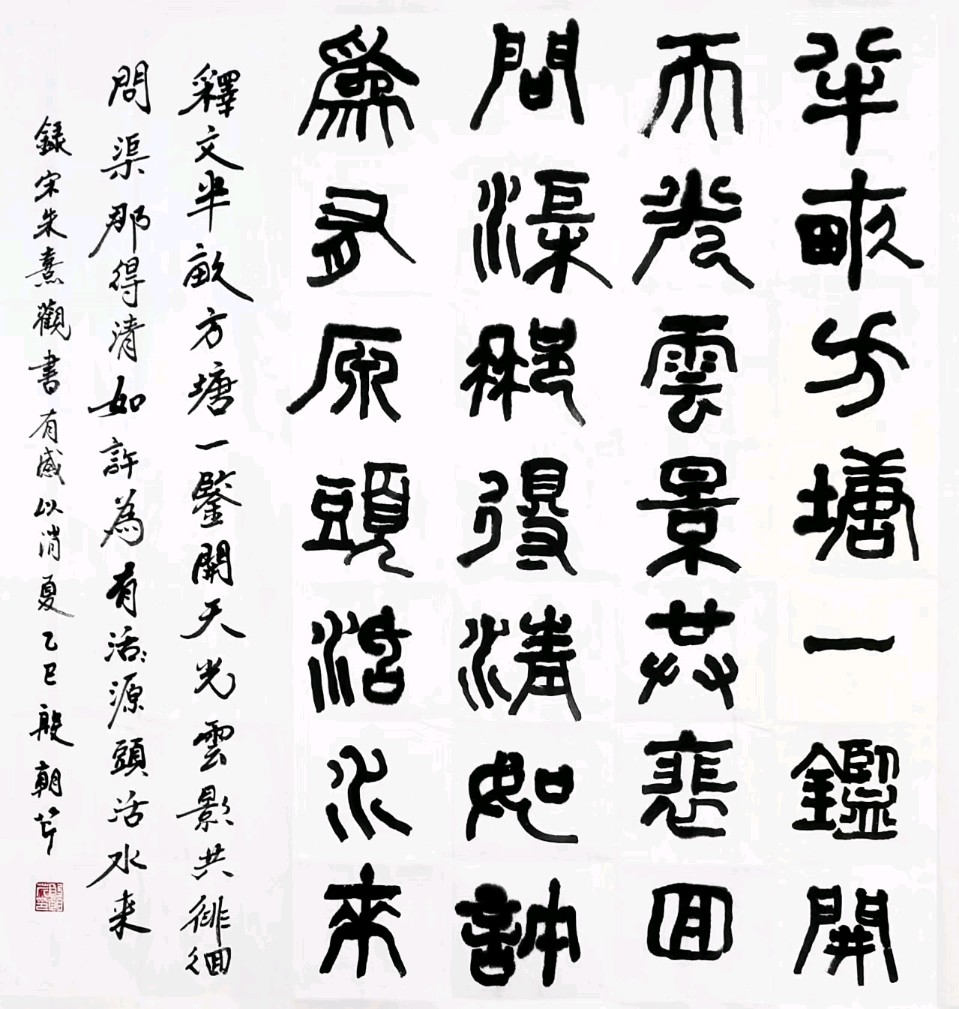 半畝方塘一鑑開
天光雲景共裵回
問渠那得清如許
爲有原頭活水來
釋文半畝方塘一鑒開天光雲影共徘徊
問渠那得清如許為有活:源頭活水来
録宋朱熹觀書有感以消夏乙巳殷朝